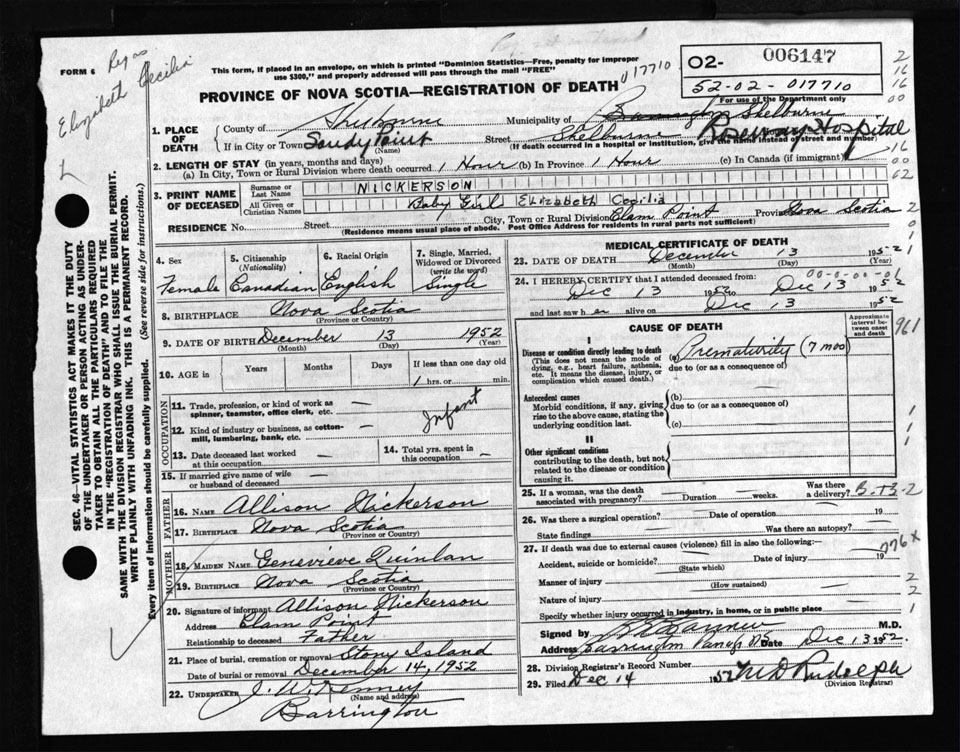 FORM 6
Elizabeth Cecilia
This form, if placed in an envelope, on which is printed "Dominion Statistics—Free, penalty for improper
use $300," and properly addressed will pass through the mail "FREE"
017710
02- 006147
52-02-017710
PROVINCE OF NOVA SCOTIA—REGISTRATION OF DEATH
For use of the Department only
1. PLACE OF DEATH
County of Shelburne Municipality of Barrington Shelburne
If in City or Town Sandy Point (Name) Street Shelburne Roseway Hospital
(If death occurred in a hospital or institution, give the name instead of street and number)
2. LENGTH OF STAY (in years, months and days)
(a) In City, Town or Rural Division where death occurred 1 Hour (b) In Province 1 Hour (c) In Canada (if immigrant)
3. PRINT NAME OF DECEASED
Surname or Last Name NICKERSON
All Given or Christian Names Baby Girl Elizabeth Cecilia
RESIDENCE No. Street City, Town or Rural Division Clam Point Province Nova Scotia
(Residence means usual place of abode. Post Office Address for residents in rural parts not sufficient)
4. Sex Female
5. Citizenship (Nationality) Canadian
6. Racial Origin English
7. Single, Married, Widowed or Divorced (write the word) Single
8. BIRTHPLACE Nova Scotia
(Province or Country)
9. DATE OF BIRTH December 13 1952
(Month) (Day) (Year)
10. AGE in Years Months Days If less than one day old
1 hrs. or — min.
OCCUPATION
11. Trade, profession, or kind of work as spinner, teamster, office clerk, etc. —
12. Kind of industry or business, as cotton-mill, lumbering, bank, etc. —
Infant
13. Date deceased last worked at this occupation —
14. Total yrs. spent in this occupation —
15. If married give name of wife or husband of deceased —
FATHER
16. NAME Allison Nickerson
17. BIRTHPLACE Nova Scotia
(Province or Country)
MOTHER
18. MAIDEN NAME Genevieve Quinlan
19. BIRTHPLACE Nova Scotia
(Province or Country)
20. Signature of informant Allison Nickerson
Address Clam Point
Relationship to deceased Father
21. Place of burial, cremation or removal Stony Island
Date of burial or removal December 14, 1952
22. UNDERTAKER J. A. Kenney
(Name and address)
Barrington
MEDICAL CERTIFICATE OF DEATH
23. DATE OF DEATH December 13 1952
(Month) (Day) (Year)
00-0-00-01
24. I HEREBY CERTIFY that I attended deceased from:
Dec 13 1952 to Dec 13 1952
and last saw her alive on Dec 13 1952
CAUSE OF DEATH
Approximate interval between onset and death
I
Disease or condition directly leading to death
(This does not mean the mode of dying, e.g., heart failure, asthenia, etc. It means the disease, injury, or complication which caused death.)
(a) Prematurity (7 mos)
due to (or as a consequence of)
Antecedent causes
Morbid conditions, if any, giving rise to the above cause, stating the underlying condition last.
(b)
due to (or as a consequence of)
(c)
II
Other significant conditions
contributing to the death, but not related to the disease or condition causing it.
25. If a woman, was the death associated with pregnancy? Duration weeks. Was there a delivery?
26. Was there a surgical operation? Date of operation 19
State findings Was there an autopsy?
27. If death was due to external causes (violence) fill in also the following:—
Accident, suicide or homicide? Date of injury 19
(State which)
776x
Manner of injury
(How sustained)
Nature of injury
Specify whether injury occurred in industry, in home, or in public place
Signed by M.D.
Address Barrington Passage N.S. Date Dec 13 1952
28. Division Registrar's Record Number
29. Filed Dec 14 1952 M D Rudolph
(Division Registrar)
SEC. 46—VITAL STATISTICS ACT MAKES IT THE DUTY
OF THE UNDERTAKER OR PERSON ACTING AS UNDER-
TAKER TO OBTAIN ALL THE PARTICULARS REQUIRED
IN THE "REGISTRATION OF DEATH" AND TO FILE THE
SAME WITH THE DIVISION REGISTRAR WHO SHALL ISSUE THE BURIAL PERMIT.
WRITE PLAINLY WITH UNFADING INK. THIS IS A PERMANENT RECORD.
Every item of information should be carefully supplied. (See reverse side for instructions.)
961